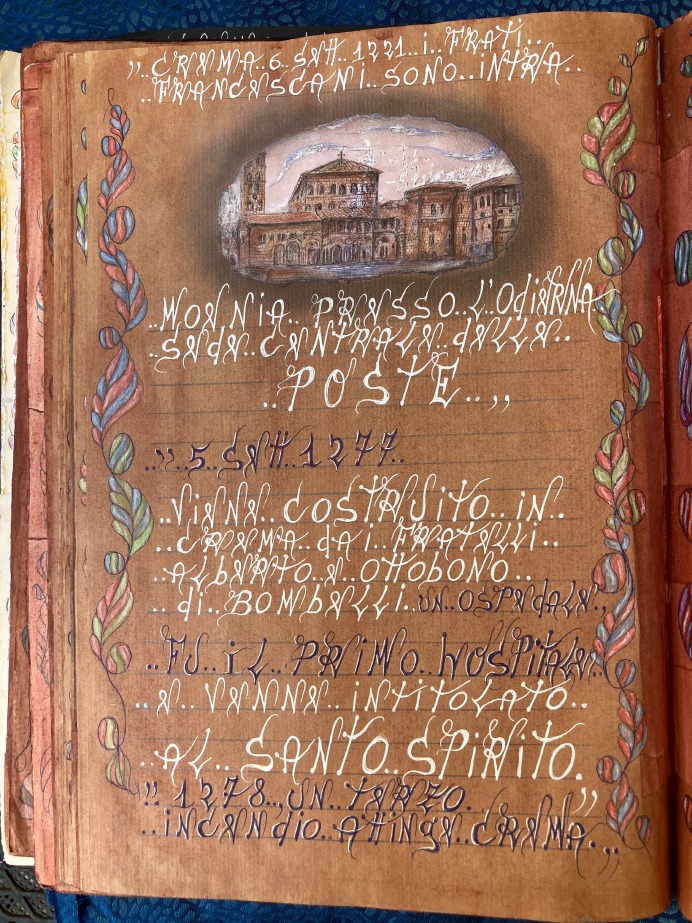 ,,..CREMA..6..SETT..1221..i..FRATI..
..FRANCESCANI..SONO..INTRA..
..MOENIA..PRESSO..L'OdiERNA
..SEDE..CENTRALE..dELLE..
..POSTE..,,
..,,..5..SETT..1277..
..VIENE..COSTRUITO..IN..
..CREMA..dAi..FRATELLI..
..ALbERTO..E..OTTObONO..
..di..BOMbELLI..UN..OSPEdALE..,
..FU..iL..PRiMO..hOSPITALE..
..E..VENNE..iNTITOLATO..
..AL..SANTO..SPiRiTO.
,,..1278..UN..TERZO..
..iNCENdiO..ATTiNGE..CREMA..,,